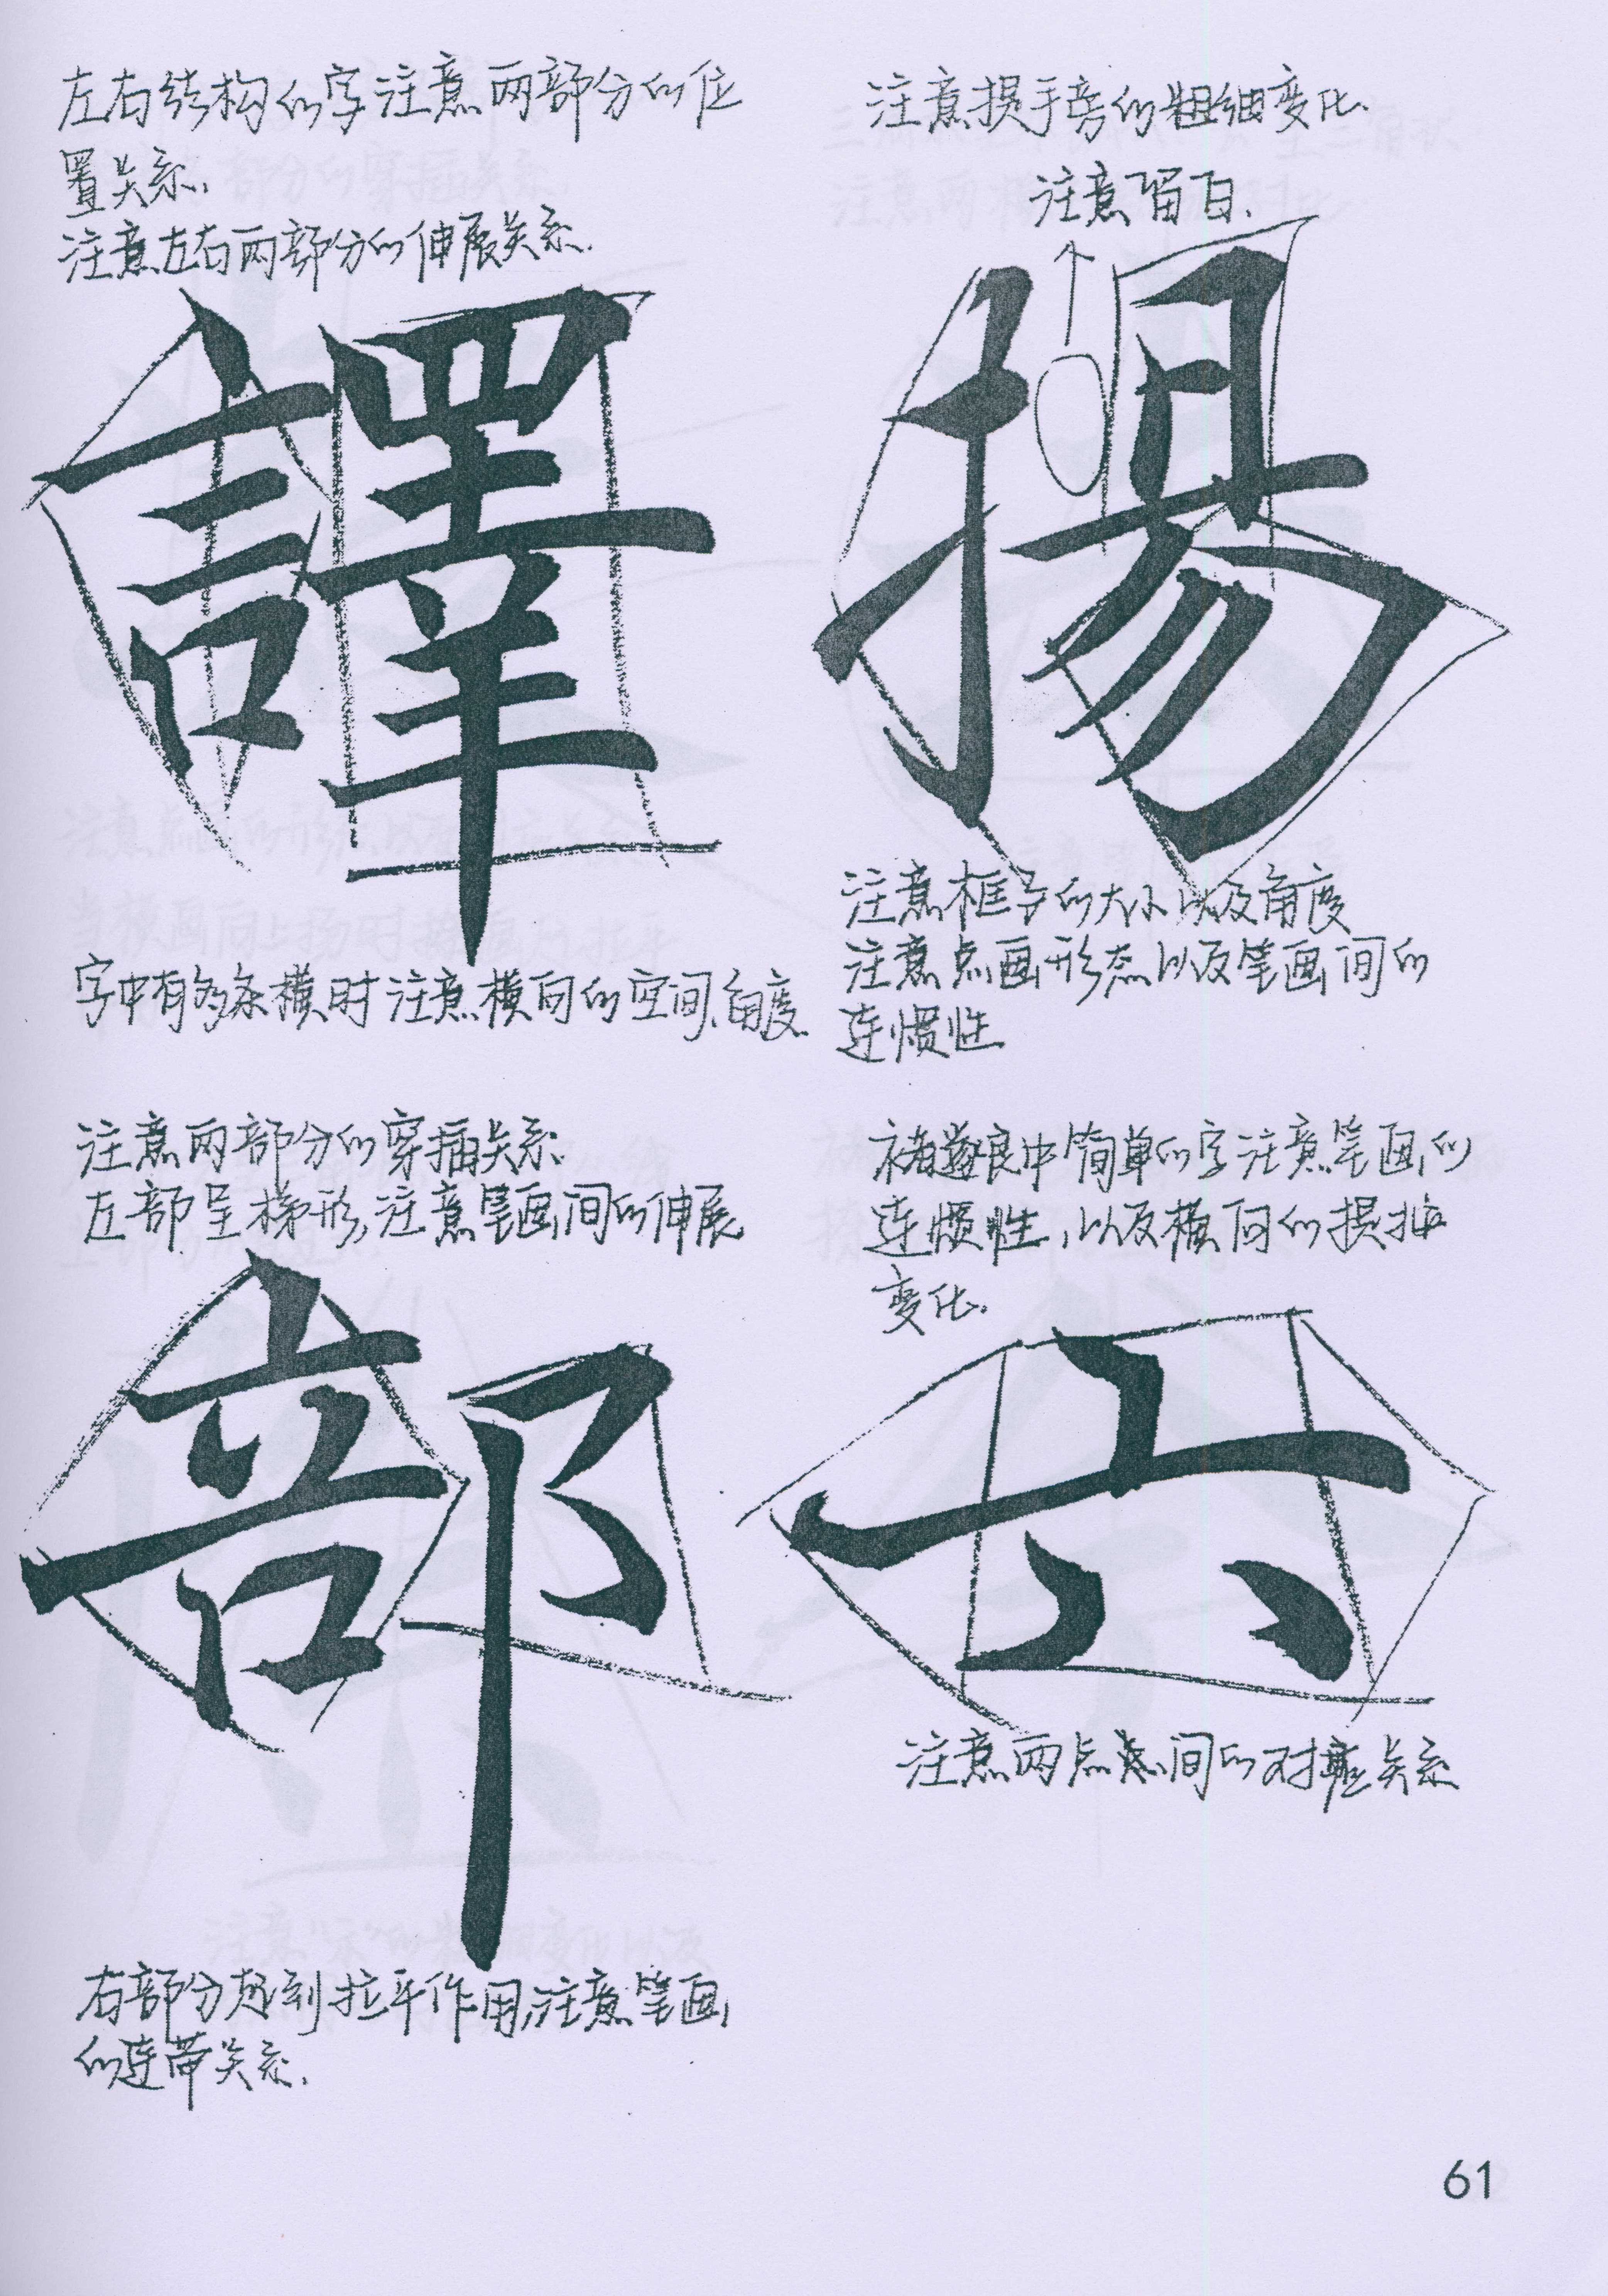 左右结构的字注意两部分的位
置关系,
注意左右两部分的伸展关系.
譯
字中有多条横时注意横向的空间、角度.
注意提手旁的粗细变化.
注意留白.
揚
注意框子的大小以及角度
注意点画形态以及笔画间的
连惯性.
注意两部分的穿插关系.
左部呈梯形,注意笔画间的伸展
部
右部分起到拉平作用,注意笔画
的连带关系.
褚遂良中简单的字注意笔画的
连惯性,以及横向的提按
变化.
六
注意两点间的对应关系
61